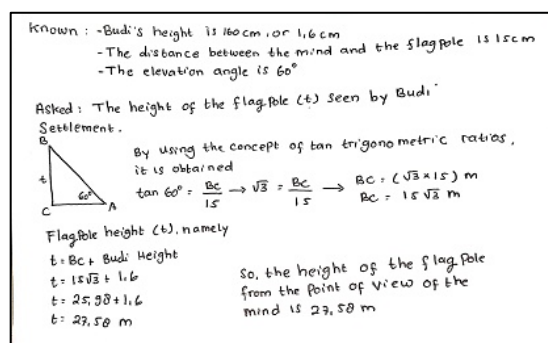 Known : -Budi's height is 160 cm, or 1,6 cm
-The distance between the mind and the flagpole is 15cm
-The elevation angle is 60°
Asked : The height of the flagpole (t) seen by Budi
Settlement.
By using the concept of tan trigonometric ratios,
it is obtained
tan 60° = BC/15 → √3 = BC/15 → BC = (√3 × 15) m
BC = 15√3 m
B
t
60°
C A
Flagpole height (t), namely
t = BC + Budi Height
t = 15√3 + 1.6
t = 25,98 + 1.6
t = 27,58 m
So, the height of the flag pole
from the point of view of the
mind is 27,58 m